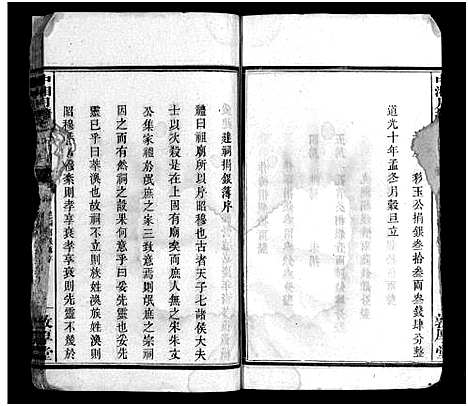 彩玉公捐銀叁拾叁兩叁錢肆分整
道光十年孟冬月穀旦立
敦厚堂
建祠捐銀薄序
禮曰祖廟所以序昭穆也古者天子七諸侯大夫
士以次殺是在上固有廟矣而庶人無之宋朱文
公集家禮於成庶之家三致意焉則氓庶之宗祠
因之而有然祠之設果何意乎曰妥先靈也妥先
靈已乎曰萃渙也故祠不立則族姓渙族姓渙則
昭穆
衰則孝享衰孝享衰則先靈不安於
敦厚堂